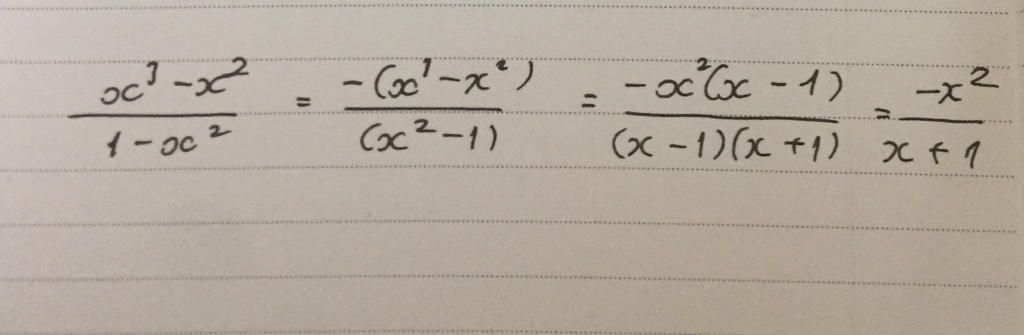 (x³ - x²)/(1 - x²) = -(x³ - x²)/(x² - 1) = -x²(x - 1)/((x - 1)(x + 1)) = -x²/(x + 1)